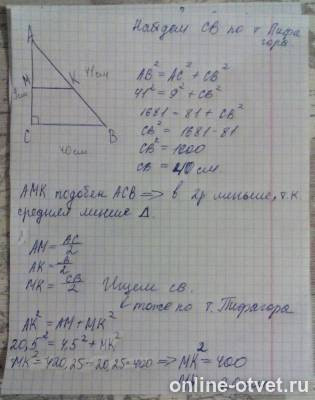 Найдем CB по т. Пифа
гора
A
41см
M
K
9см
C
B
40см
AB² = AC² + CB²
41² = 9² + CB²
1681 = 81 + CB²
CB² = 1681 - 81
CB² = 1600
CB = 40 см.
AMK подобен ACB ⟹ в 2р меньше, т.к
средняя линия Δ.
AM = AC/2
AK = /2
MK = CB/2 Ищем св.
тоже по т. Пифагора
AK² = AM + MK²
20,5² = 4,5² + MK²
MK² = 420,25 - 20,25 = 400 ⟹ MK² = 400
online-otvet.ru